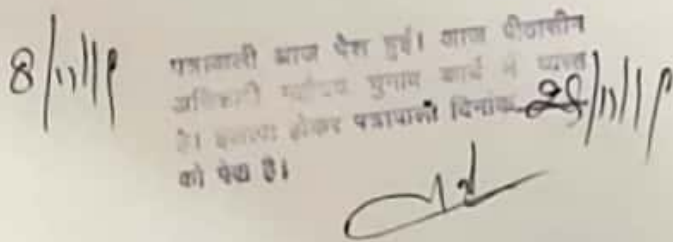 8/11/19
पत्रावली आज पेश हुई। आज पीठासीन
अधिकारी महोदय चुनाव कार्य में व्यस्त
है। होकर पत्रावली दिनांक 28/11/19
को पेश है।